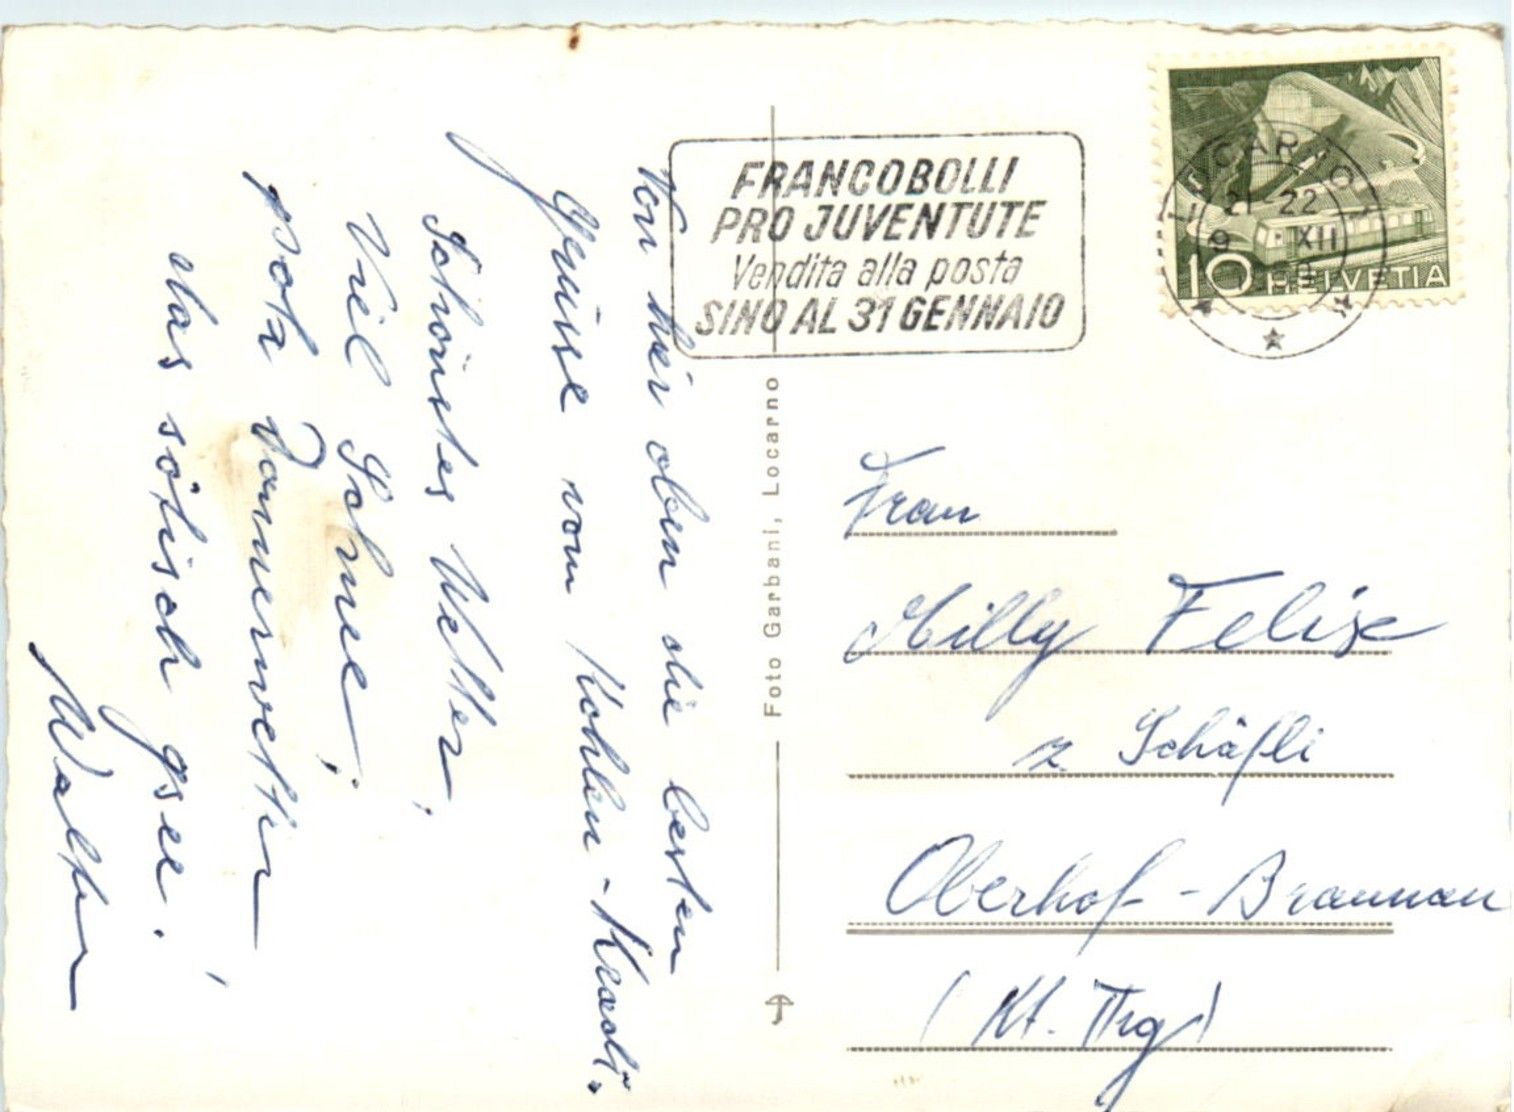 Von hier oben die besten
Grüsse vom Kohlen-
Schönstes Wetter,
Viel Schnee,
was sötisch gsee!
Walter
FRANCOBOLLI
PRO JUVENTUTE
Vendita alla posta
SINO AL 31 GENNAIO
LOCARNO 1
21-22
9 XII
10 HELVETIA
Foto Garbani, Locarno
Frau
Milly Felix
z. Schäfli
Oberhof-Braunau
(Kt. Thg)